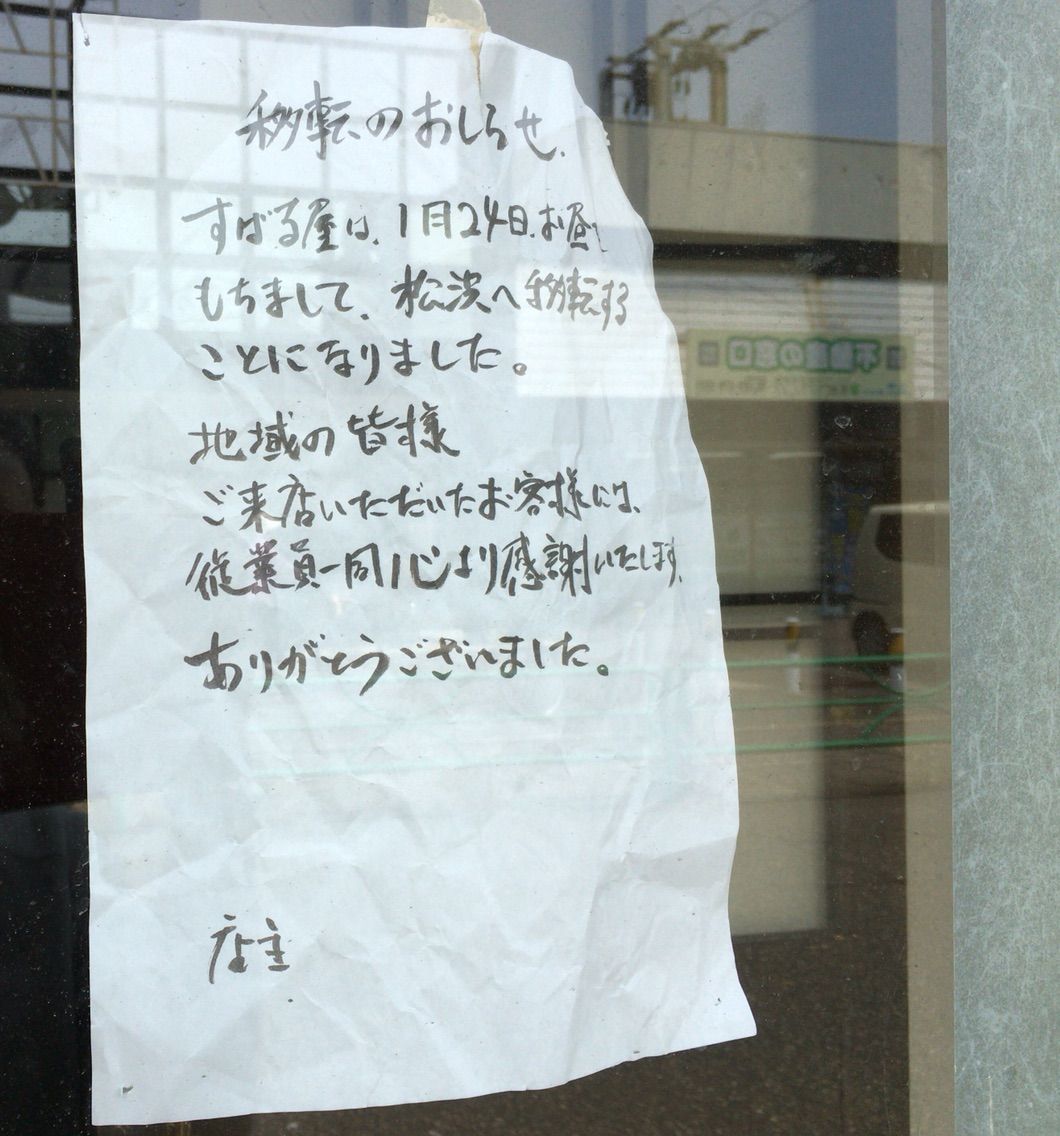 移転のおしらせ.
すばる屋は、1月24日、お昼
もちまして、松浜へ移転する
ことになりました。
地域の皆様
ご来店いただいたお客様には、
従業員一同心より感謝いたします、
ありがとうございました。
店主
の窓口